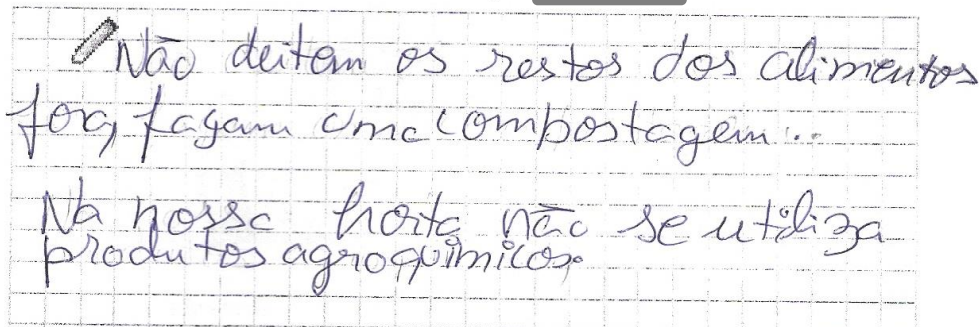 Não deitem os restos dos alimentos
fora, façam uma compostagem...
Na nossa horta não se utiliza
produtos agroquímicos.